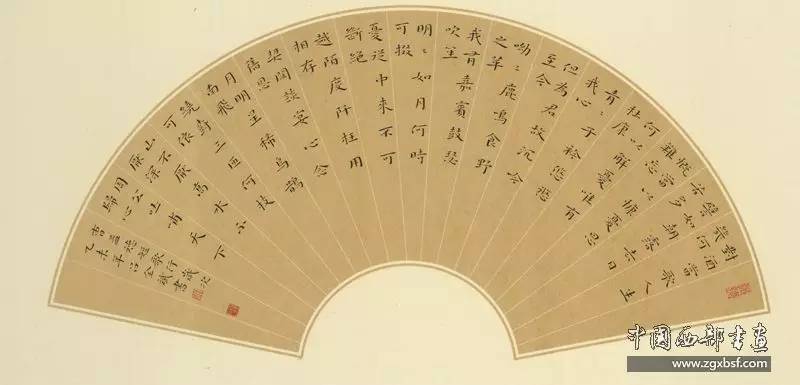 對酒當歌人生
幾何
譬如朝露去日
苦多
慨當以慷憂思
難忘
何以解憂唯有
杜康
青〻子衿悠〻
我心
但為君故沉吟
至今
呦〻鹿鳴食野
之苹
我有嘉賓鼓瑟
吹笙
明〻如月何時
可掇
憂從中來不可
斷絕
越陌度阡枉用
相存
契闊談宴心念
舊恩
月明星稀烏鵲
南飛
繞樹三匝何枝
可依
山不厭高水不
厭深
周公吐哺天下
歸心
曹孟德短歌行歲次
乙未年書
中国西部书画
www.zgxbsf.com